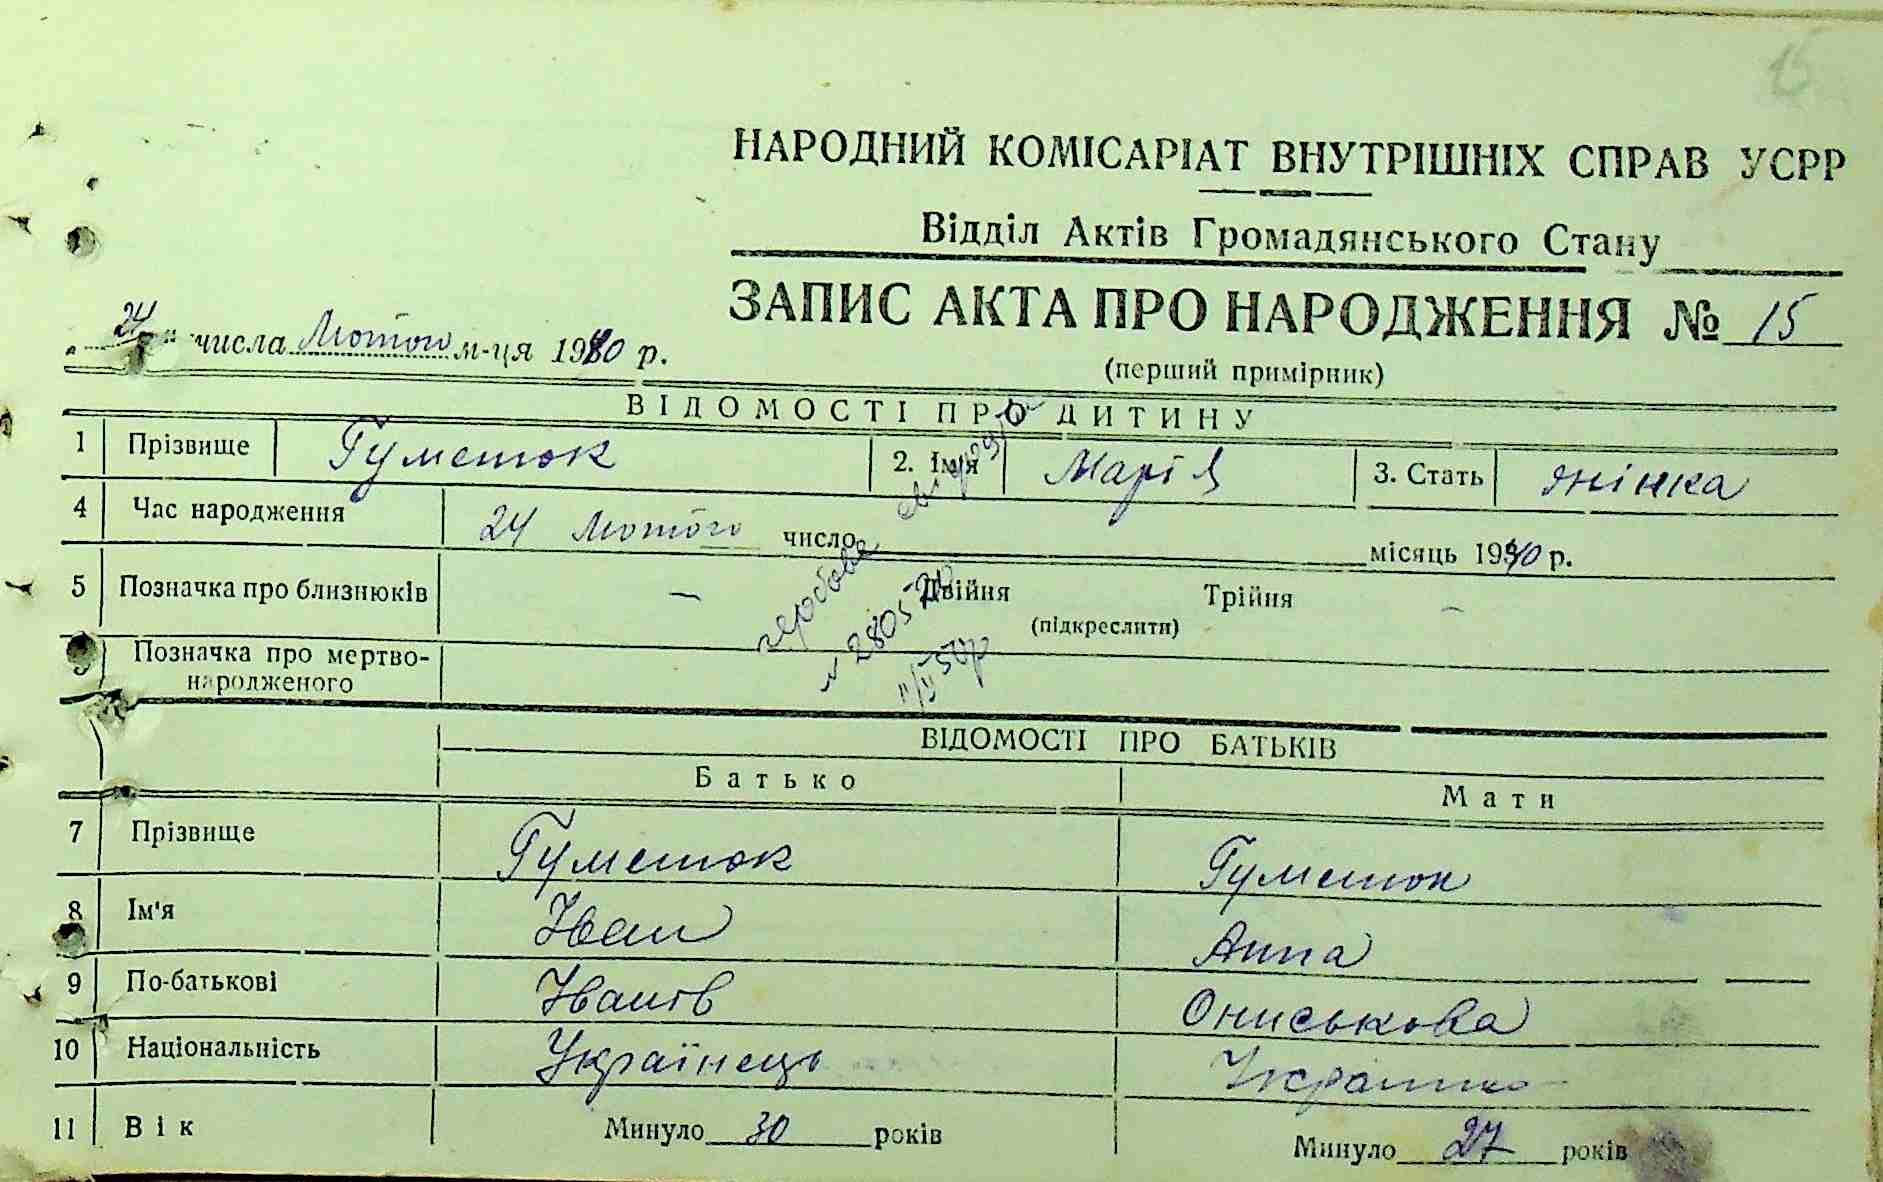 15
НАРОДНИЙ КОМІСАРІАТ ВНУТРІШНІХ СПРАВ УСРР
Відділ Актів Громадянського Стану
ЗАПИС АКТА ПРО НАРОДЖЕННЯ № 15
„24" числа Лютого м-ця 1940 р.
(перший примірник)
ВІДОМОСТІ ПРО ДИТИНУ
1 Прізвище Гуменюк 2. Імя Марія 3. Стать жінка
4 Час народження 24 Лютого число місяць 1940 р.
5 Позначка про близнюків — Двійня Трійня —
(підкреслити)
Позначка про мертво-
народженого
гербове
№ 2805
11/II 50р
ВІДОМОСТІ ПРО БАТЬКІВ
Батько Мати
7 Прізвище Гуменюк Гуменюк
8 Ім'я Іван Анна
9 По-батькові Іванів Ониськова
10 Національність Українець Українка
11 Вік Минуло 30 років Минуло 27 років